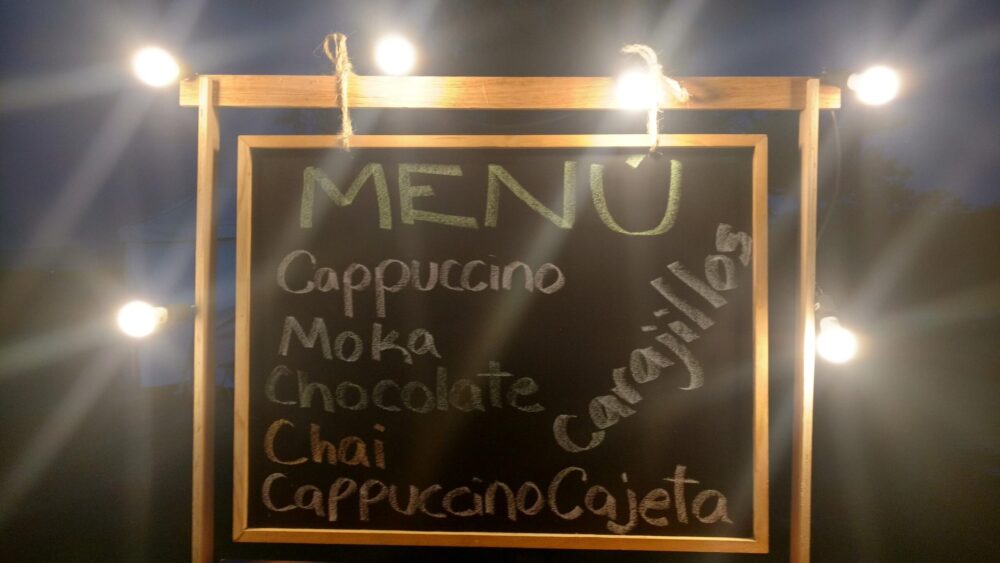 MENÚ
Cappuccino
Moka
Chocolate
Chai
Cappuccino Cajeta
Carajillos